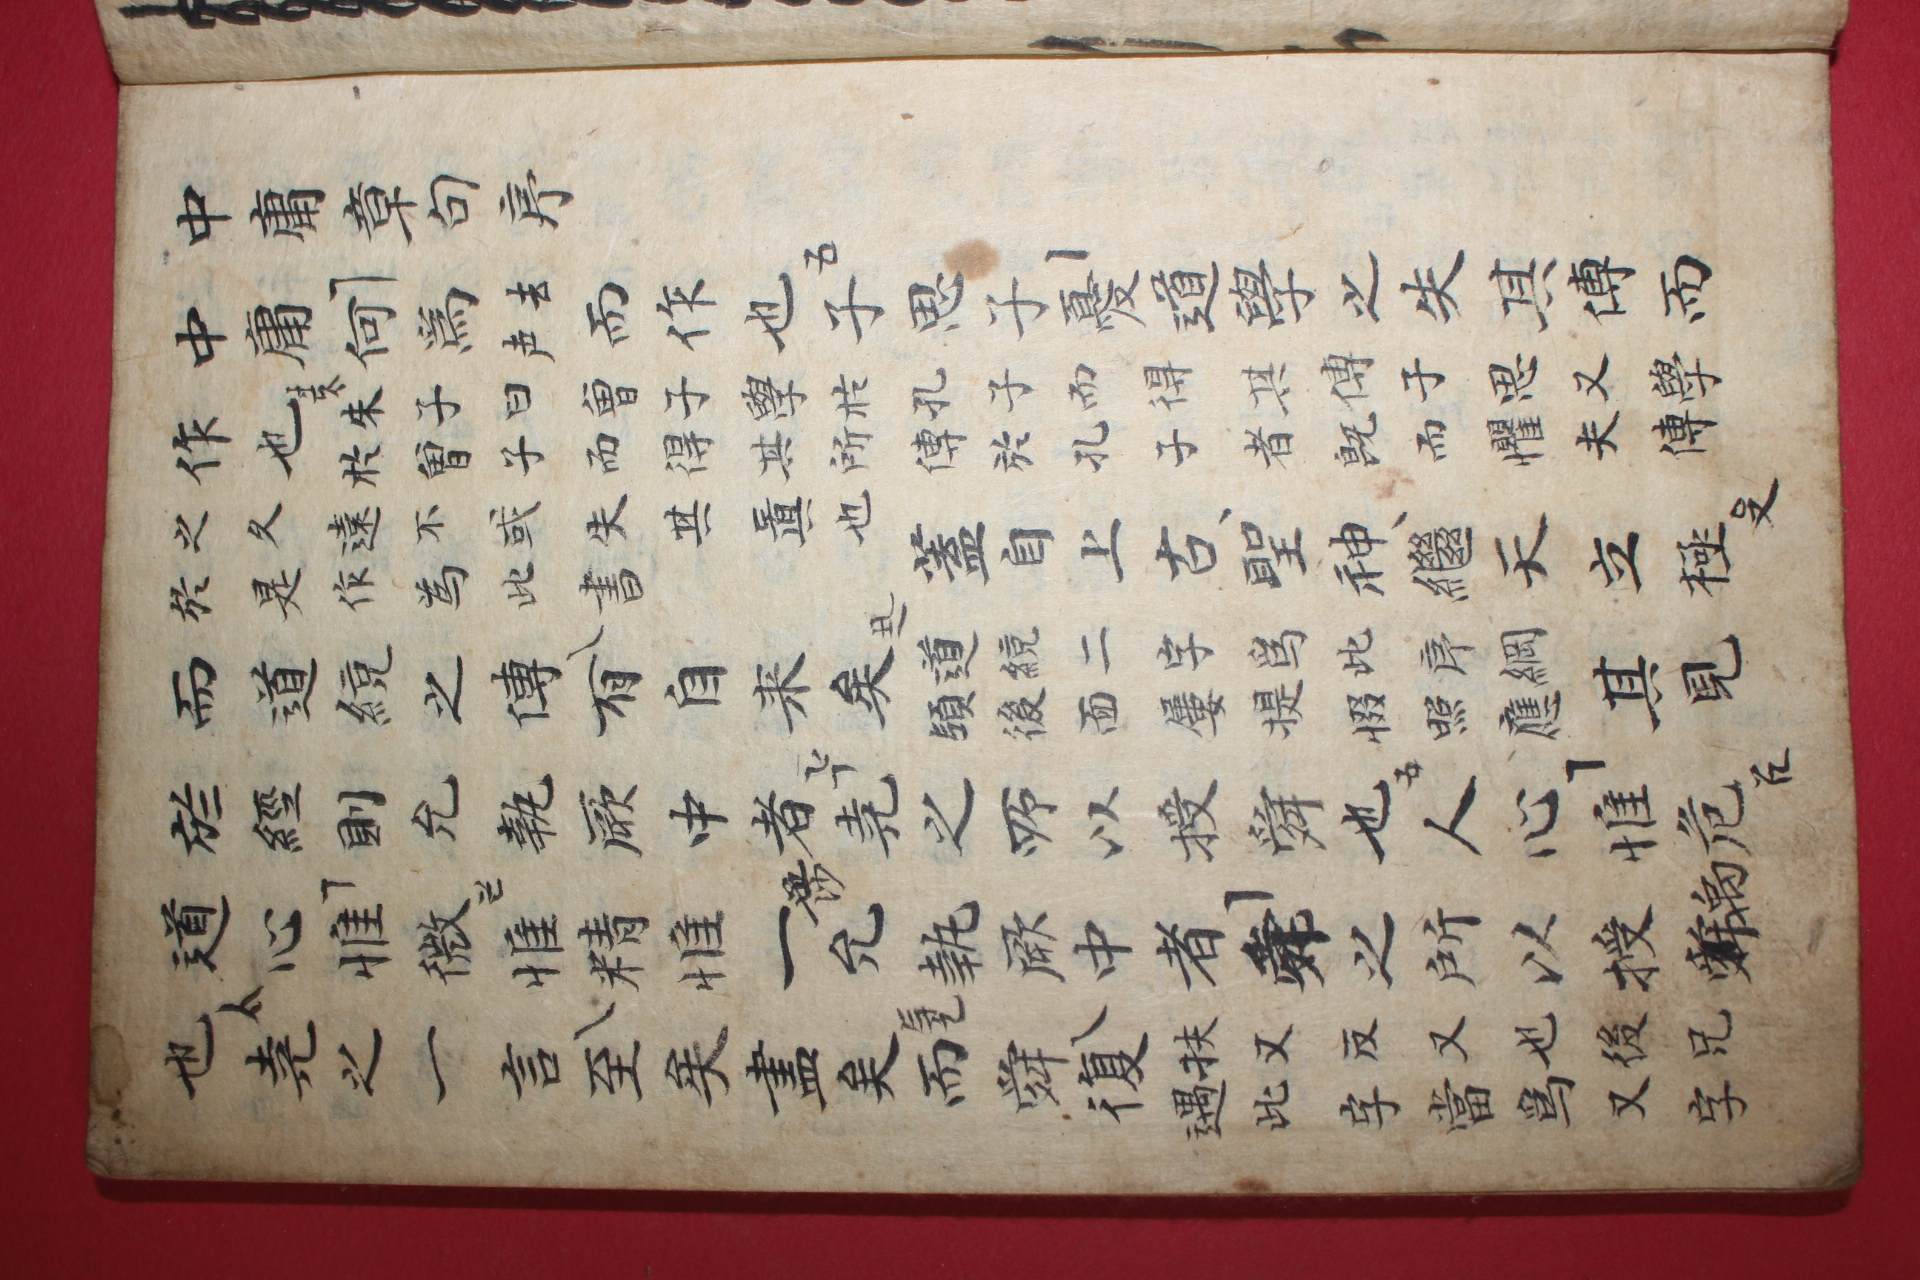 中庸章句序
中庸何爲去声而作也子思子憂道學之失其傳而
作也朱子曰曾子學於孔子而得其傳子思又學
於曾子而得其所傳於孔子者既而懼夫傳
之久遠不或失其眞也
於是作為此書
蓋自上古聖神繼天立極
而道統之傳有自来矣
道統二字爲此序綱
頭後面屢提掇照應
其見
於經則允執厥中者堯之所以授舜也人心惟危
道心惟微惟精惟一允執厥中者舜之所以授禹
也堯之一言至矣盡矣而舜復
扶又反又也後兄
遇此字當爲又字